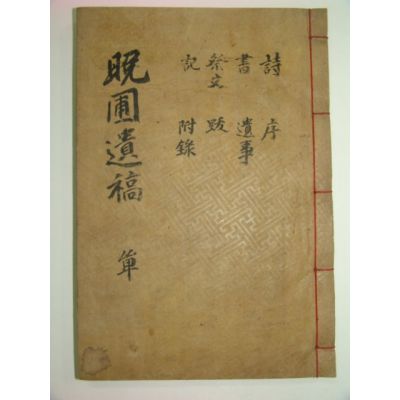 詩 序
書 遺事
祭文 跋
記 附錄
晩圃遺稿 単